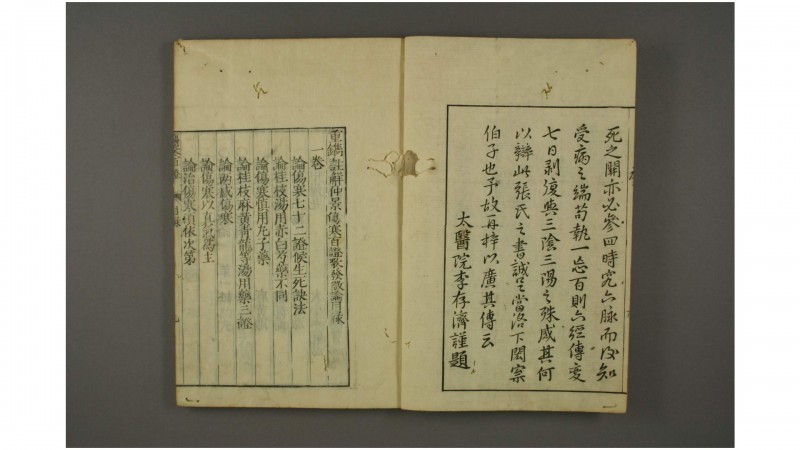 死之關亦必參四時究六脉而後知
受病之端苟執一忘百則六經傳变
七日剥復與三陰三陽之殊咸其何
以辯此張氏之書誠足當洛下閎案
伯子也予故再梓以廣其傳云
太醫院李存濟謹題
重鐫註解仲景傷寒百證歌發微論目錄
一卷
論傷寒七十二證候生死訣法
論桂枝湯用赤白芍藥不同
論傷寒慎用丸子藥
論桂枝麻黄青龍等湯用藥三證
論兩感傷寒
論傷寒以真氣為主
論治傷寒須依次第